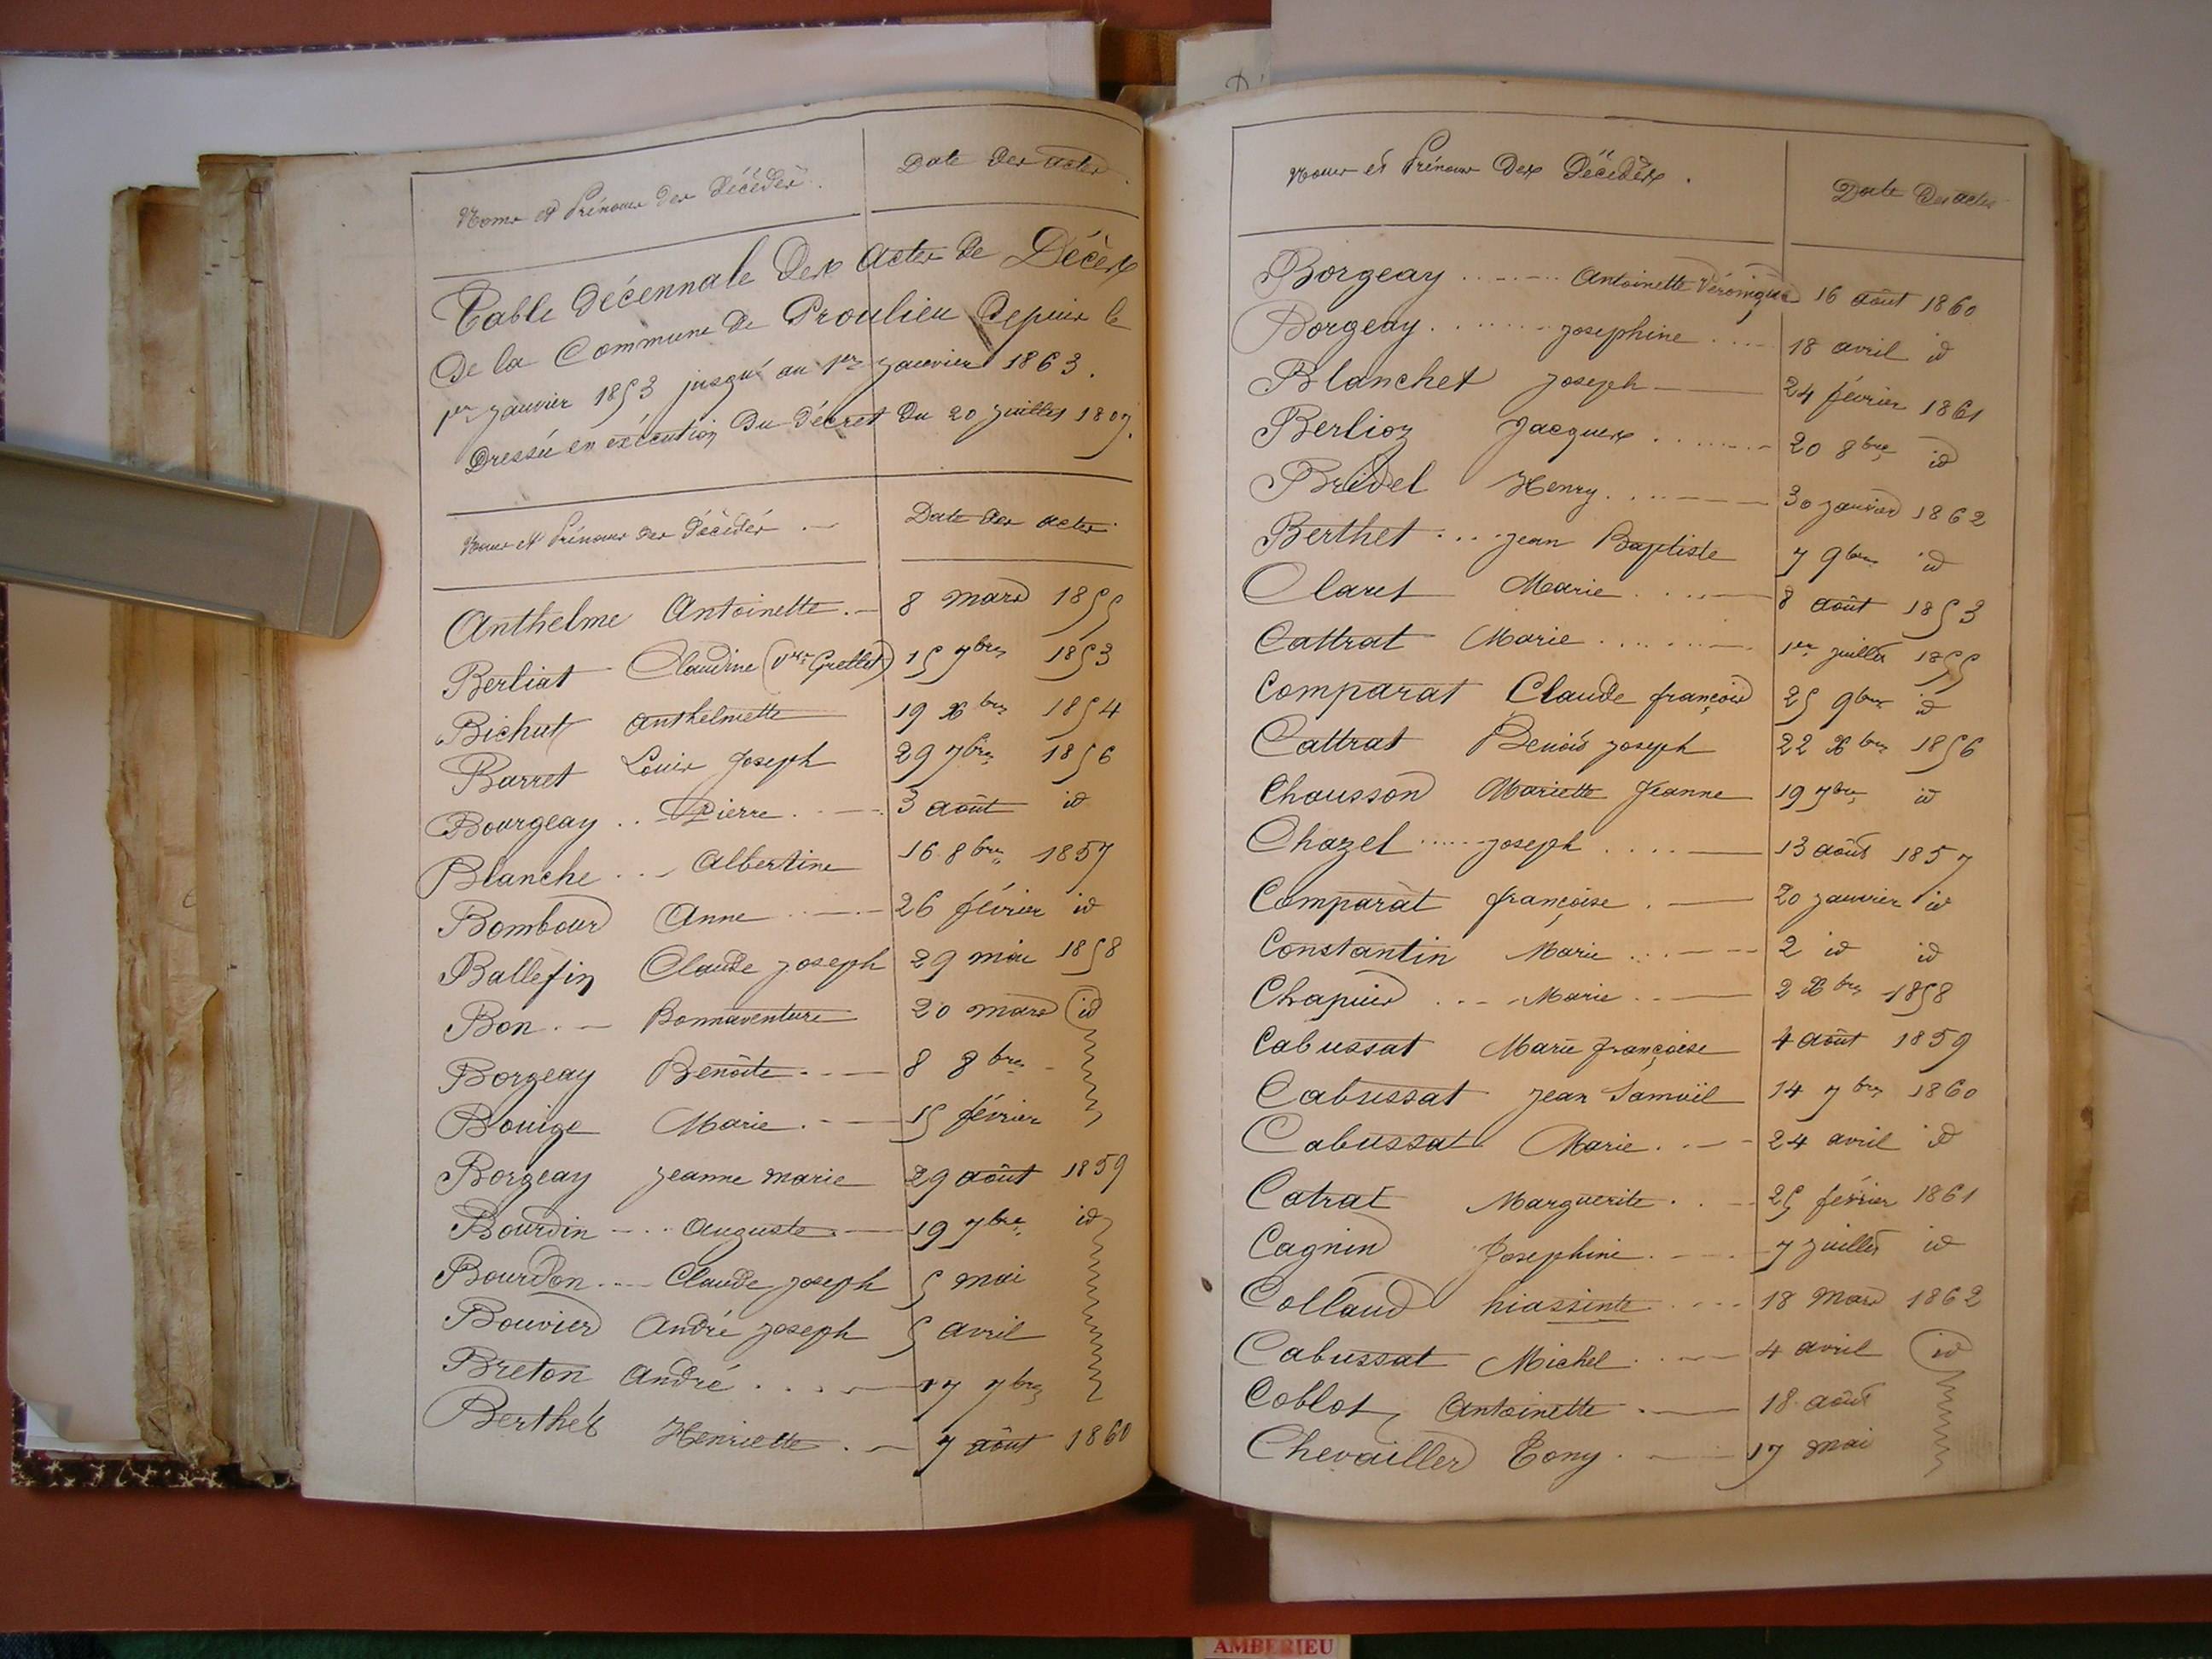 Noms et Prénoms des Décédés. Date des actes.
Table Décennale des actes de Décès
De la Commune de Proulieu Depuis le
1er janvier 1853 jusqu'au 1er janvier 1863.
Dressée en exécution du Décret du 20 juillet 1807.
Noms et Prénoms des Décédés Date des actes
Anthelme Antoinette 8 mars 1855
Berliat Claudine (Vve Grettet) 15 7bre 1853
Bichut anthelmette 19 Xbre 1854
Barret Louis Joseph 29 7bre 1856
Bourgeay Pierre 3 août id
Blanche Albertine 16 8bre 1857
Bombour Anne 26 février id
Ballefin Claude joseph 29 mai 1858
Bon Bonnaventure 20 mars id
Borgeay Benoîte 8 8bre
Bouige Marie 15 février
Borgeay jeanne marie 29 août 1859
Bourdin auguste 19 7bre id
Bourdon Claude joseph 5 mai
Bouvier André joseph 5 avril
Breton André 17 7bre
Berthet Henriette 7 août 1860
Noms et Prénoms Des Décédés. Date des actes
Borgeay Antoinette Véronique 16 août 1860
Borgeay josephine 18 avril id
Blanchet joseph 24 février 1861
Berlioz Jacques 20 8bre id
Bridel Henry 30 janvier 1862
Berthet jean Baptiste 7 9bre id
Claret Marie 8 août 1853
Cattrat Marie 1er juillet 1855
Comparat Claude françois 25 9bre id
Cattrat Benoît joseph 22 Xbre 1856
Chausson Mariette Jeanne 19 7bre id
Chazel joseph 13 août 1857
Comparat françoise 20 janvier id
Constantin Marie 2 id id
Chapuis Marie 2 Xbre 1858
Cabussat Marie françoise 4 août 1859
Cabussat jean Samuïl 14 7bre 1860
Cabussat Marie 24 avril id
Catrat Marguerite 25 février 1861
Cagnin Josephine 7 juillet id
Collaud hiassinte 18 Mars 1862
Cabussat Michel 4 avril id
Coblot Antoinette 18 août
Chevailler Tony 17 mai
AMBERIEU